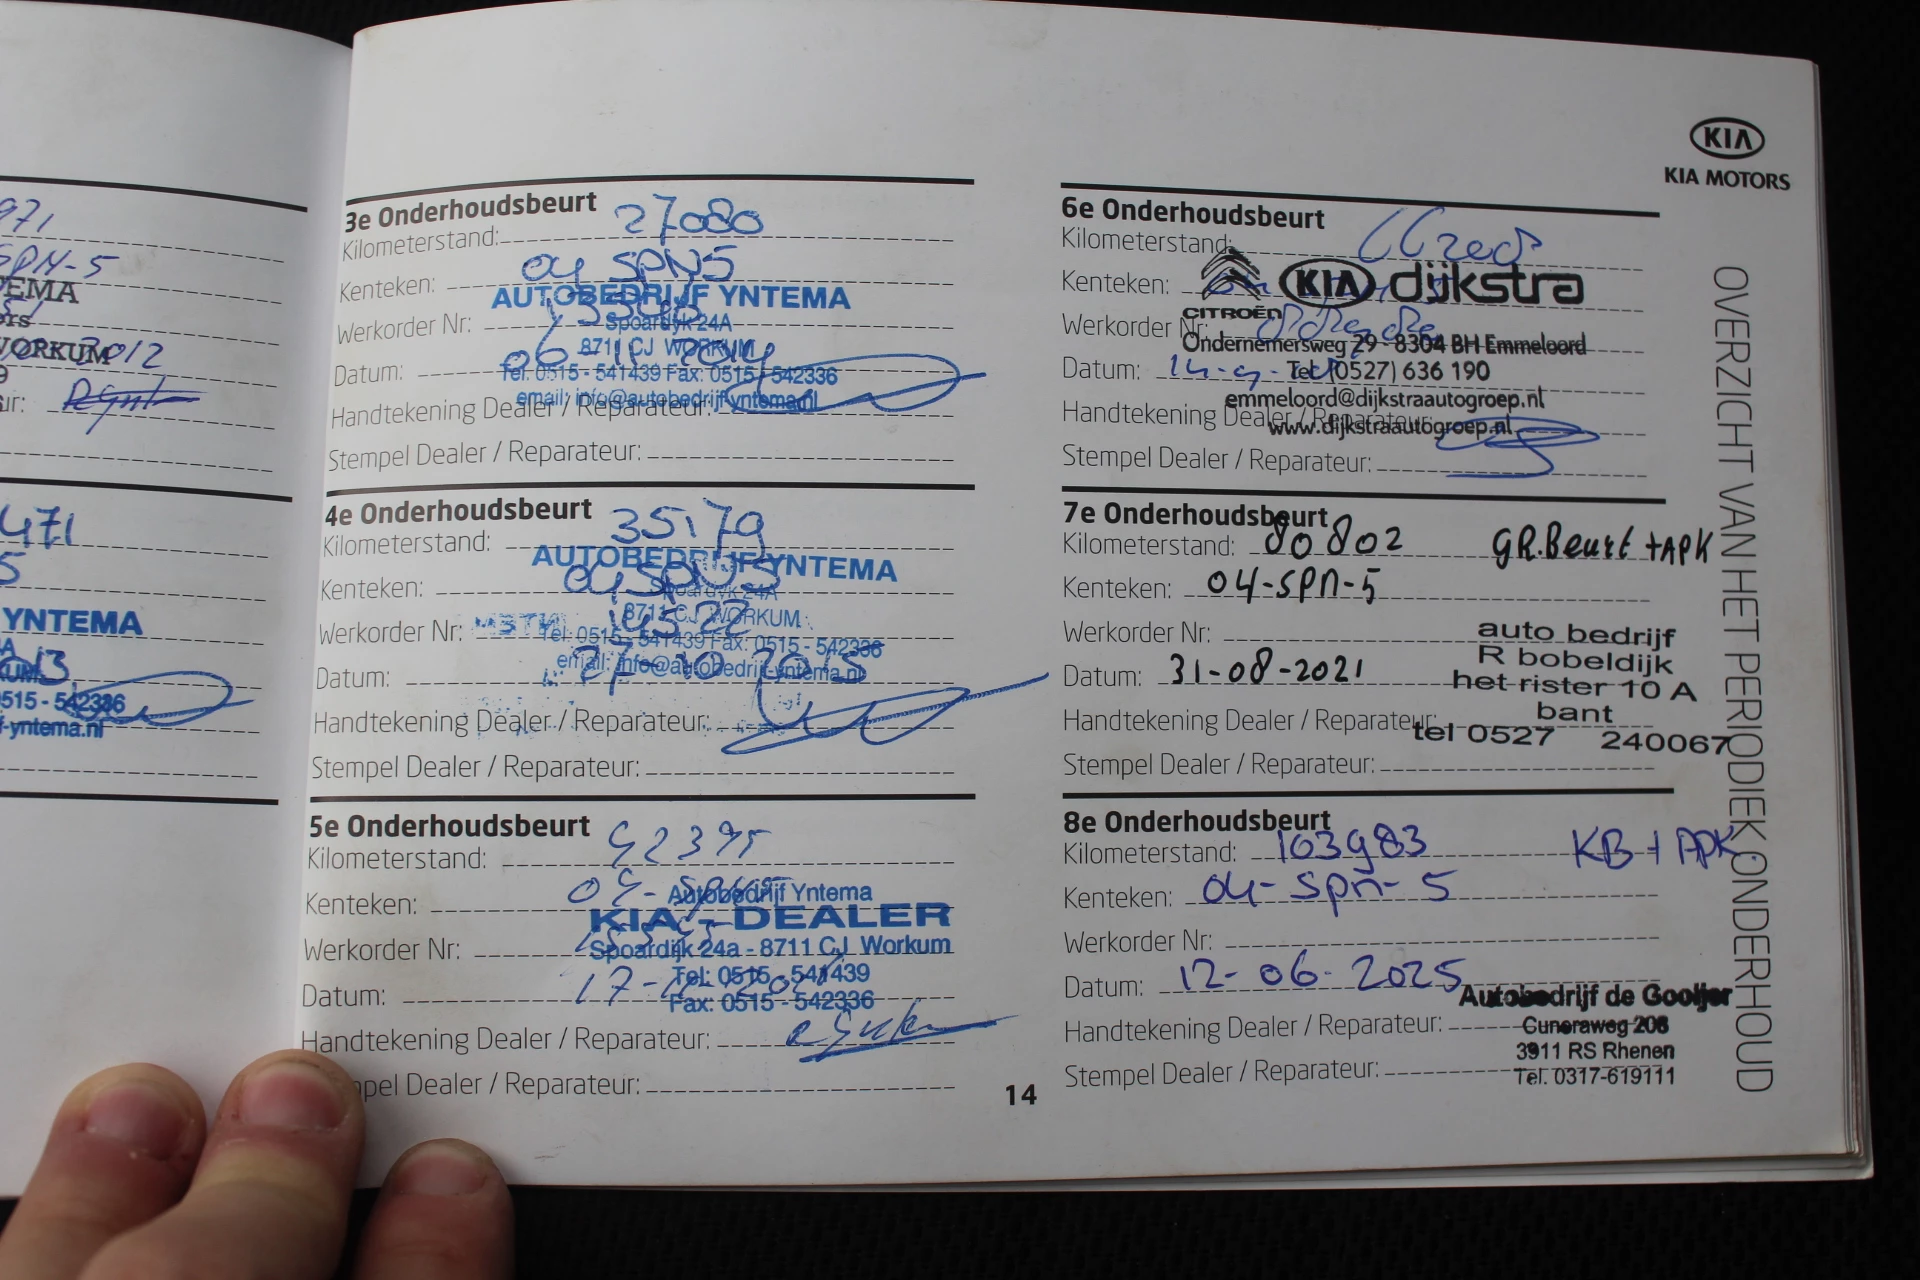 971
SPN-5
TEMA
ers
WORKUM 2012
9
ur:
471
5
YNTEMA
A
KUM 13
0515 - 542336
f-yntema.nl
3e Onderhoudsbeurt
Kilometerstand: 27080
Kenteken: 04 SPN5
AUTOBEDRIJF YNTEMA
Werkorder Nr:
Spoardyk 24A
8711 CJ WORKUM
Datum: 06
Tel. 0515 - 541439 Fax: 0515 - 542336
email: info@autobedrijf-yntema.nl
Handtekening Dealer / Reparateur:
Stempel Dealer / Reparateur:
4e Onderhoudsbeurt
Kilometerstand: 35179
AUTOBEDRIJF YNTEMA
Kenteken: 04 SPN5
Spoardyk 24A
8711 CJ WORKUM
Werkorder Nr:
Tel. 0515 - 541439 Fax: 0515 - 542336
email: info@autobedrijf-yntema.nl
Datum: 27-10-2015
Handtekening Dealer / Reparateur:
Stempel Dealer / Reparateur:
5e Onderhoudsbeurt
Kilometerstand: 42395
Kenteken: 04-
Autobedrijf Yntema
KIA - DEALER
Werkorder Nr:
Spoardijk 24a - 8711 CJ Workum
Tel: 0515 - 541439
Datum: 17-
Fax: 0515 - 542336
Handtekening Dealer / Reparateur:
pel Dealer / Reparateur:
14
KIA
KIA MOTORS
6e Onderhoudsbeurt
Kilometerstand:
Kenteken:
CITROËN KIA dijkstra
Werkorder Nr:
Ondernemersweg 29 - 8304 BH Emmeloord
Datum: 14-9-
Tel. (0527) 636 190
emmeloord@dijkstraautogroep.nl
Handtekening Dealer / Reparateur:
www.dijkstraautogroep.nl
Stempel Dealer / Reparateur:
7e Onderhoudsbeurt
Kilometerstand: 80802 GR.Beurt +APK
Kenteken: 04-SPN-5
Werkorder Nr:
auto bedrijf
R bobeldijk
Datum: 31-08-2021
het rister 10 A
bant
Handtekening Dealer / Reparateur:
tel 0527 240067
Stempel Dealer / Reparateur:
8e Onderhoudsbeurt
Kilometerstand: 103983 KB + APK
Kenteken: 04-SPN-5
Werkorder Nr:
Datum: 12-06-2025
Autobedrijf de Gooijer
Handtekening Dealer / Reparateur:
Cuneraweg 208
3911 RS Rhenen
Stempel Dealer / Reparateur:
Tel. 0317-619111
OVERZICHT VAN HET PERIODIEK ONDERHOUD